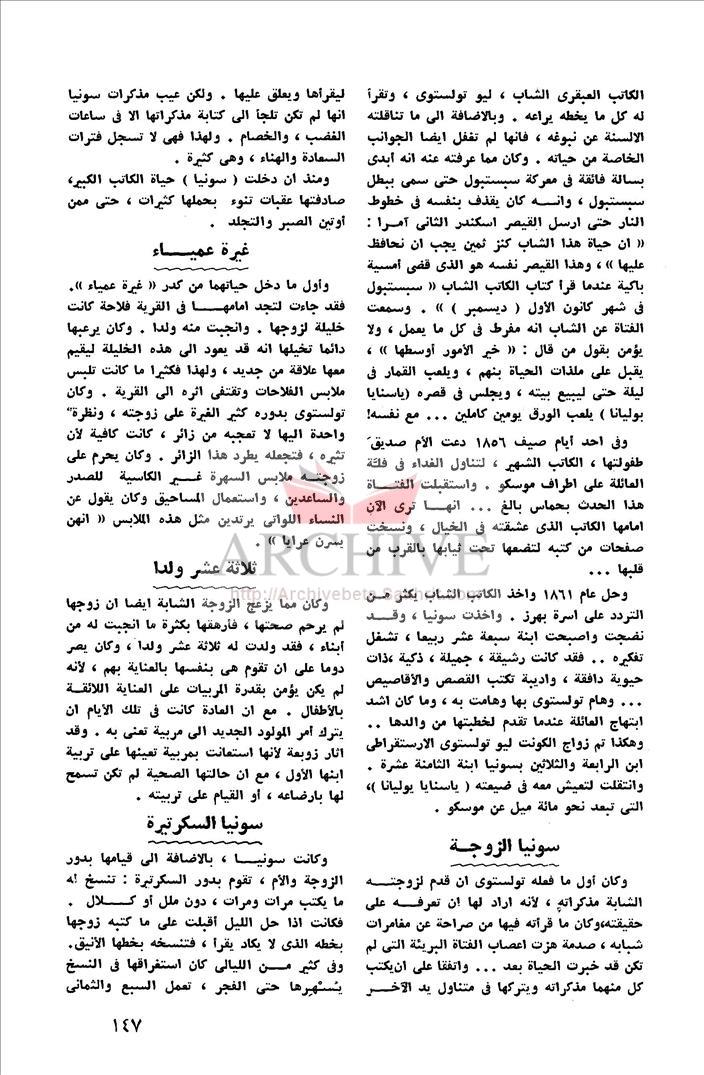 الكاتب العبقرى الشاب ، ليو تولستوى ، وتقرأ
له كل ما يخطه يراعه . وبالاضافة الى ما تناقلته
الالسنة عن نبوغه ، فانها لم تغفل ايضا الجوانب
الخاصة من حياته . وكان مما عرفته عنه انه أبدى
بسالة فائقة فى معركة سبستبول حتى سمى ببطل
سبستبول ، وانــه كان يقذف بنفسه فى خطوط
النار حتى ارسل القيصر اسكندر الثانى آمرا :
« ان حياة هذا الشاب كنز ثمين يجب ان نحافظ
عليها » ، وهذا القيصر نفسه هو الذى قضى أمسية
باكية عندما قرأ كتاب الكاتب الشاب « سبستبول
فى شهر كانون الأول ( ديسمبر ) » . وسمعت
الفتاة عن الشاب انه مفرط فى كل ما يعمل ، ولا
يؤمن بقول من قال : « خير الأمور أوسطها » ،
يقبل على ملذات الحياة بنهم ، ويلعب القمار فى
ليلة حتى ليبيع بيته ، ويجلس فى قصره (ياسنايا
بوليانا ) يلعب الورق يومين كاملين ... مع نفسه!
وفى احد أيام صيف ١٨٥٦ دعت الأم صديق
طفولتها ، الكاتب الشهير ، لتناول الغداء فى فلة
العائلة على اطراف موسكو . واستقبلت الفتــاة
هذا الحدث بحماس بالغ ... انهــا ترى الآن
امامها الكاتب الذى عشقته فى الخيال ، ونسخت
صفحات من كتبه لتضعها تحت ثيابها بالقرب من
قلبها ...
وحل عام ١٨٦١ واخذ الكاتب الشاب يكثر من
التردد على اسرة بهرز . واخذت سونيا ، وقــد
نضجت واصبحت ابنة سبعة عشر ربيعا ، تشغل
تفكيره .. فقد كانت رشيقة ، جميلة ، ذكية ،ذات
حيوية دافقة ، واديبة تكتب القصص والأقاصيص
... وهام تولستوى بها وهامت به ، وما كان اشد
ابتهاج العائلة عندما تقدم لخطبتها من والدها ..
وهكذا تم زواج الكونت ليو تولستوى الارستقراطى
ابن الرابعة والثلاثين بسونيا ابنة الثامنة عشرة .
وانتقلت لتعيش معه فى ضيعته ( ياسنايا يوليانا )،
التى تبعد نحو مائة ميل عن موسكو .
سونيا الزوجــة
وكان أول ما فعله تولستوى ان قدم لزوجتــه
الشابة مذكراته ، لأنه اراد لها ان تعرفــه على
حقيقته،وكان ما قرأته فيها من صراحة عن مغامرات
شبابه ، صدمة هزت اعصاب الفتاة البريئة التى لم
تكن قد خبرت الحياة بعد ... واتفقا على ان يكتب
كل منهما مذكراته ويتركها فى متناول يد الآخــر
ليقرأها ويعلق عليها . ولكن عيب مذكرات سونيا
انها لم تكن تلجأ الى كتابة مذكراتها الا فى ساعات
الغضب ، والخصام . ولهذا فهى لا تسجل فترات
السعادة والهناء ، وهى كثيرة .
ومنذ ان دخلت ( سونيا ) حياة الكاتب الكبير،
صادفتها عقبات تنوء بحملها كثيرات ، حتى ممن
أوتين الصبر والتجلد .
غيرة عميــاء
وأول ما دخل حياتهما من كدر « غيرة عمياء ».
فقد جاءت لتجد امامهــا فى القرية فلاحة كانت
خليلة لزوجها . وانجبت منه ولدا . وكان يرعبها
دائما تخيلها انه قد يعود الى هذه الخليلة ليقيم
معها علاقة من جديد ، ولهذا فكثيرا ما كانت تلبس
ملابس الفلاحات وتقتفى اثره الى القرية . وكان
تولستوى بدوره كثير الغيرة على زوجته ، ونظرة
واحدة اليها لا تعجبه من زائر ، كانت كافية لأن
تثيره ، فتجعله يطرد هذا الزائر . وكان يحرم على
زوجتــه ملابس السهرة غــير الكاسية للصدر
والساعدين ، واستعمال المساحيق وكان يقول عن
النساء اللواتى يرتدين مثل هذه الملابس « انهن
يسرن عرايا » .
ثلاثة عشر ولدا
وكان مما يزعج الزوجة الشابة ايضا ان زوجها
لم يرحم صحتها ، فأرهقها بكثرة ما انجبت له من
أبناء ، فقد ولدت له ثلاثة عشر ولدا ، وكان يصر
دوما على ان تقوم هى بنفسها بالعناية بهم ، لأنه
لم يكن يؤمن بقدرة المربيات على العناية اللائقــة
بالأطفال . مع ان العادة كانت فى تلك الأيام ان
يترك أمر المولود الجديد الى مربية تعنى به . وقد
اثار زوبعة لأنها استعانت بمربية تعينها على تربية
ابنها الأول ، مع ان حالتها الصحية لم تكن تسمح
لها بارضاعه ، أو القيام على تربيته .
سونيا السكرتيرة
وكانت سونيــا ، بالاضافة الى قيامها بدور
الزوجة والأم ، تقوم بدور السكرتيرة : تنسخ له
ما يكتب مرات ومرات ، دون ملل أو كــلال .
فكانت اذا حل الليل أقبلت على ما كتبه زوجها
بخطه الذى لا يكاد يقرأ ، فتنسخه بخطها الأنيق.
وفى كثير مــن الليالى كان استغراقها فى النسخ
يسهرها حتى الفجر ، تعمل السبع والثمانى
١٤٧
ARCHIVE